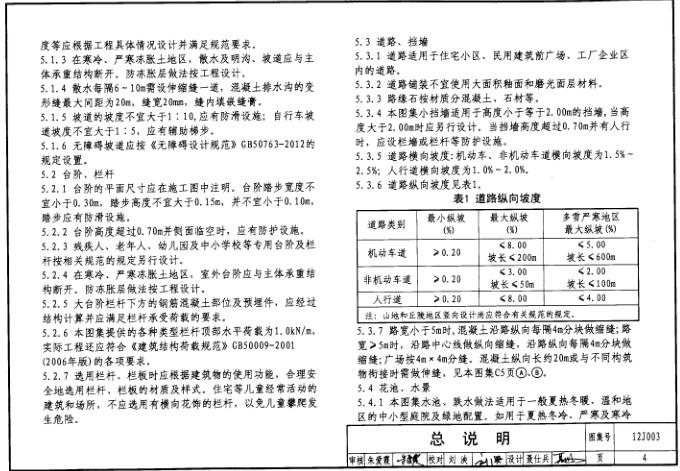 度等应根据工程具体情况设计并满足规范要求。
5.1.3 在寒冷、严寒冻胀土地区，散水及明沟、坡道应与主
体承重结构断开。防冻胀层做法按工程设计。
5.1.4 散水每隔6~10m需设伸缩缝一道，混凝土排水沟的变
形缝最大间距为20m，缝宽20mm，缝内填嵌缝膏。
5.1.5 坡道的坡度不宜大于1:10,应有防滑设施；自行车坡
道坡度不宜大于1:5，应有辅助梯步。
5.1.6 无障碍坡道应按《无障碍设计规范》GB50763-2012的
规定设置。
5.2 台阶、栏杆
5.2.1 台阶的平面尺寸应在施工图中注明。台阶踏步宽度不
宜小于0.30m，踏步高度不宜大于0.15m，并不宜小于0.10m，
踏步应有防滑设施。
5.2.2 台阶高度超过0.70m并侧面临空时，应有防护设施。
5.2.3 残疾人、老年人、幼儿园及中小学校等专用台阶及栏
杆按相关规范的规定另行设计。
5.2.4 在寒冷、严寒冻胀土地区，室外台阶应与主体承重结
构断开。防冻胀层做法按工程设计。
5.2.5 大台阶栏杆下方的钢筋混凝土部位及预埋件，应经过
结构计算并应满足栏杆承受荷载的要求。
5.2.6 本图集提供的各种类型栏杆顶部水平荷载为1.0kN/m,
实际工程还应符合《建筑结构荷载规范》GB50009-2001
(2006年版)的各项要求。
5.2.7 选用栏杆、栏板时应根据建筑物的使用功能，合理安
全地选用栏杆，栏板的材质及样式。住宅等儿童经常活动的
建筑和场所，不应选用有横向花饰的栏杆，以免儿童攀爬发
生危险。
5.3 道路、挡墙
5.3.1 道路适用于住宅小区、民用建筑前广场、工厂企业区
内的道路。
5.3.2 道路铺装不宜使用大面积釉面和磨光面层材料。
5.3.3 路缘石按材质分混凝土、石材等。
5.3.4 本图集小挡墙适用于高度小于等于2.00m的挡墙,当高
度大于2.00m时应另行设计。当挡墙高度超过0.70m并有人行
时，应设栏墙或栏杆等防护设施。
5.3.5 道路横向坡度:机动车、非机动车道横向坡度为1.5%~
2.5%; 人行道横向坡度为1.0%~2.0%。
5.3.6 道路纵向坡度见表1。
表1 道路纵向坡度
道路类别 最小纵坡(%) 最大纵坡(%) 多雪严寒地区最大纵坡(%)
机动车道 ≥0.20 ≤8.00 坡长≤200m ≤5.00 坡长≤600m
非机动车道 ≥0.20 ≤3.00 坡长≤50m ≤2.00 坡长≤100m
人行道 ≥0.20 ≤8.00 ≤4.00
注：山地和丘陵地区竖向设计尚应符合有关规范的规定。
5.3.7 路宽小于5m时,混凝土沿路纵向每隔4m分块做缩缝;路
宽≥5m时，沿路中心线做纵向缩缝，沿路纵向每隔4m分块做
缩缝;广场按4m×4m分缝。混凝土纵向长约20m或与不同构筑
物衔接时需做伸缝，见本图集C5页Ⓐ、Ⓑ。
5.4 花池、水景
5.4.1 本图集水池、跌水做法适用于一般夏热冬暖、温和地
区的中小型庭院及绿地配置。如用于夏热冬冷、严寒及寒冷
总 说 明 图集号 12J003
审核 朱爱霞 校对 刘 泱 设计 聂仕兵 页 4